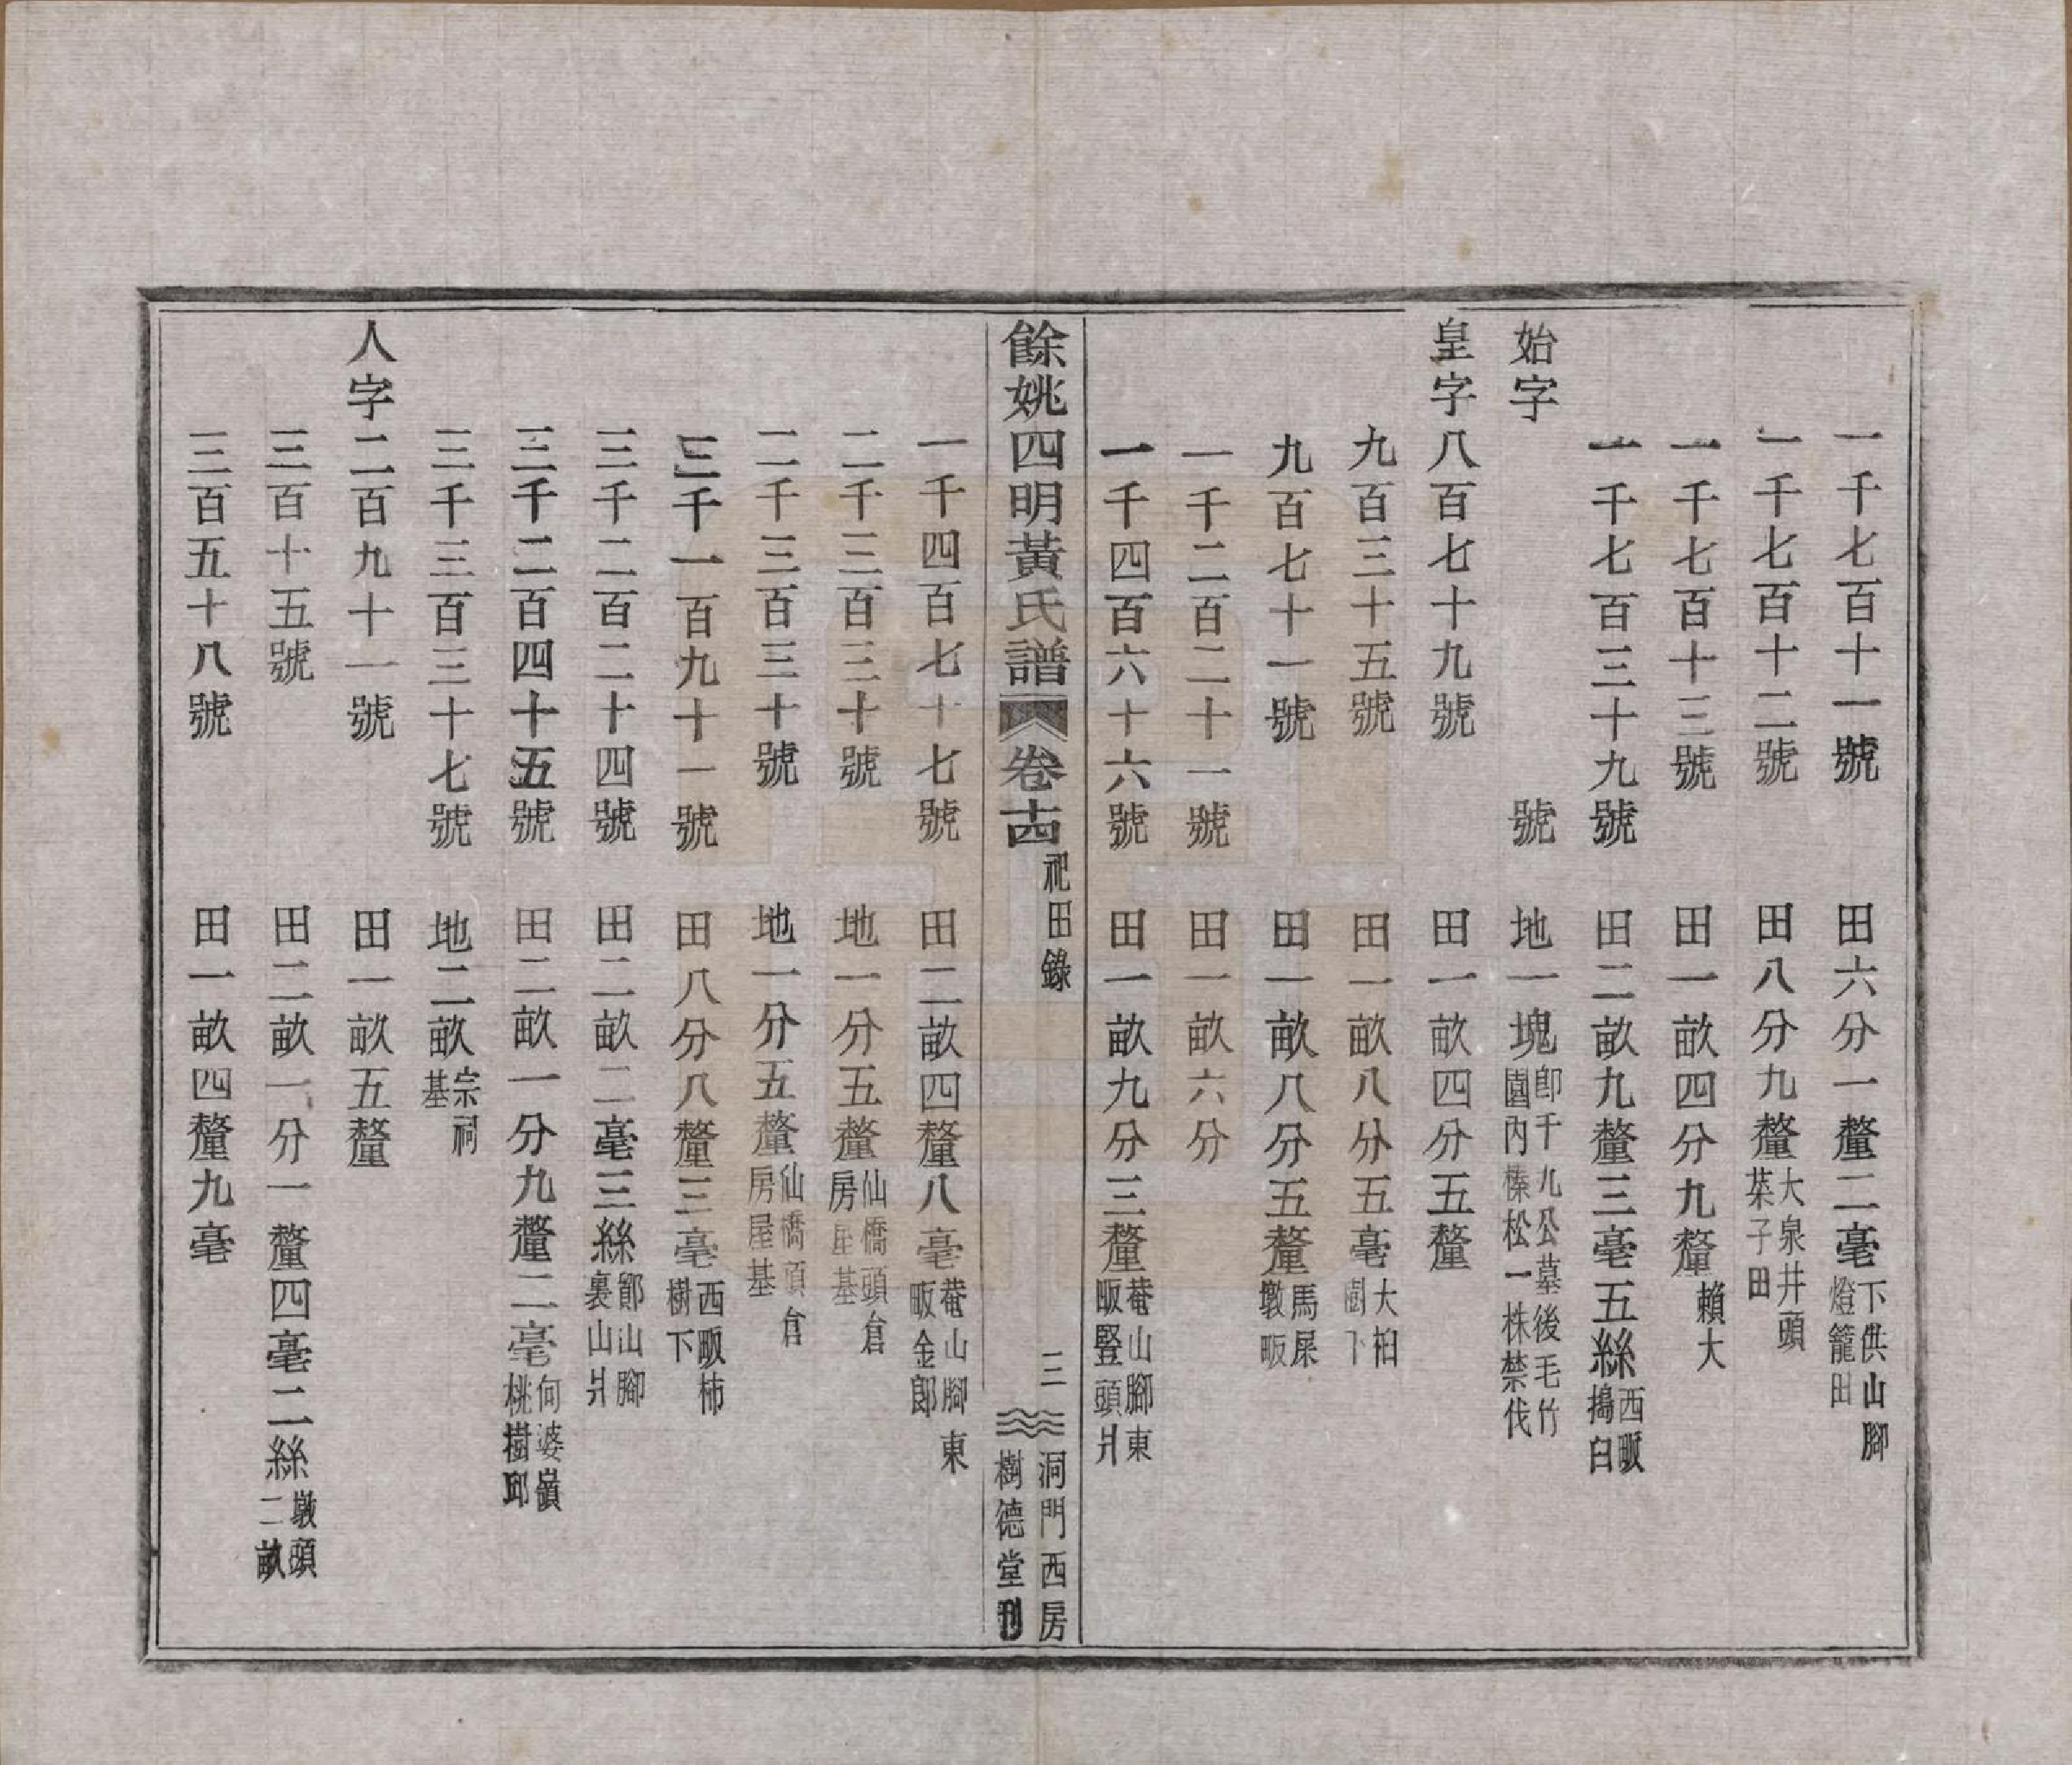 一千七百十一號　田六分一釐二毫下供山腳燈籠田
一千七百十二號　田八分九釐大泉井頭菜子田
一千七百十三號　田一畝四分九釐賴大
一千七百三十九號　田二畝九釐三毫五絲西畈搗臼
始字　號　地一塊卽千九公墓後毛竹園內樣松一株禁伐
皇字八百七十九號　田一畝四分五釐
九百三十五號　田一畝八分五毫大桕樹下
九百七十一號　田一畝八分五釐馬屎墩畈
一千二百二十一號　田一畝六分
一千四百六十六號　田一畝九分三釐菴山腳東畈豎頭爿
餘姚四明黃氏譜　卷十四　祀田錄　三　洞門西房樹德堂刊
一千四百七十七號　田二畝四釐八毫菴山腳東畈金郎
二千三百三十號　地一分五釐仙橋頭倉房屋基
二千三百三十號　地一分五釐仙橋頭倉房屋基
三千一百九十一號　田八分八釐三毫西畈柿樹下
三千二百二十四號　田二畝二毫三絲鄮山腳裏山爿
三千二百四十五號　田二畝一分九釐二毫何婆嶺桃樹邱
三千三百三十七號　地二畝宗祠基
人字二百九十一號　田一畝五釐
三百十五號　田二畝一分一釐四毫二絲墩頭二畝
三百五十八號　田一畝四釐九毫